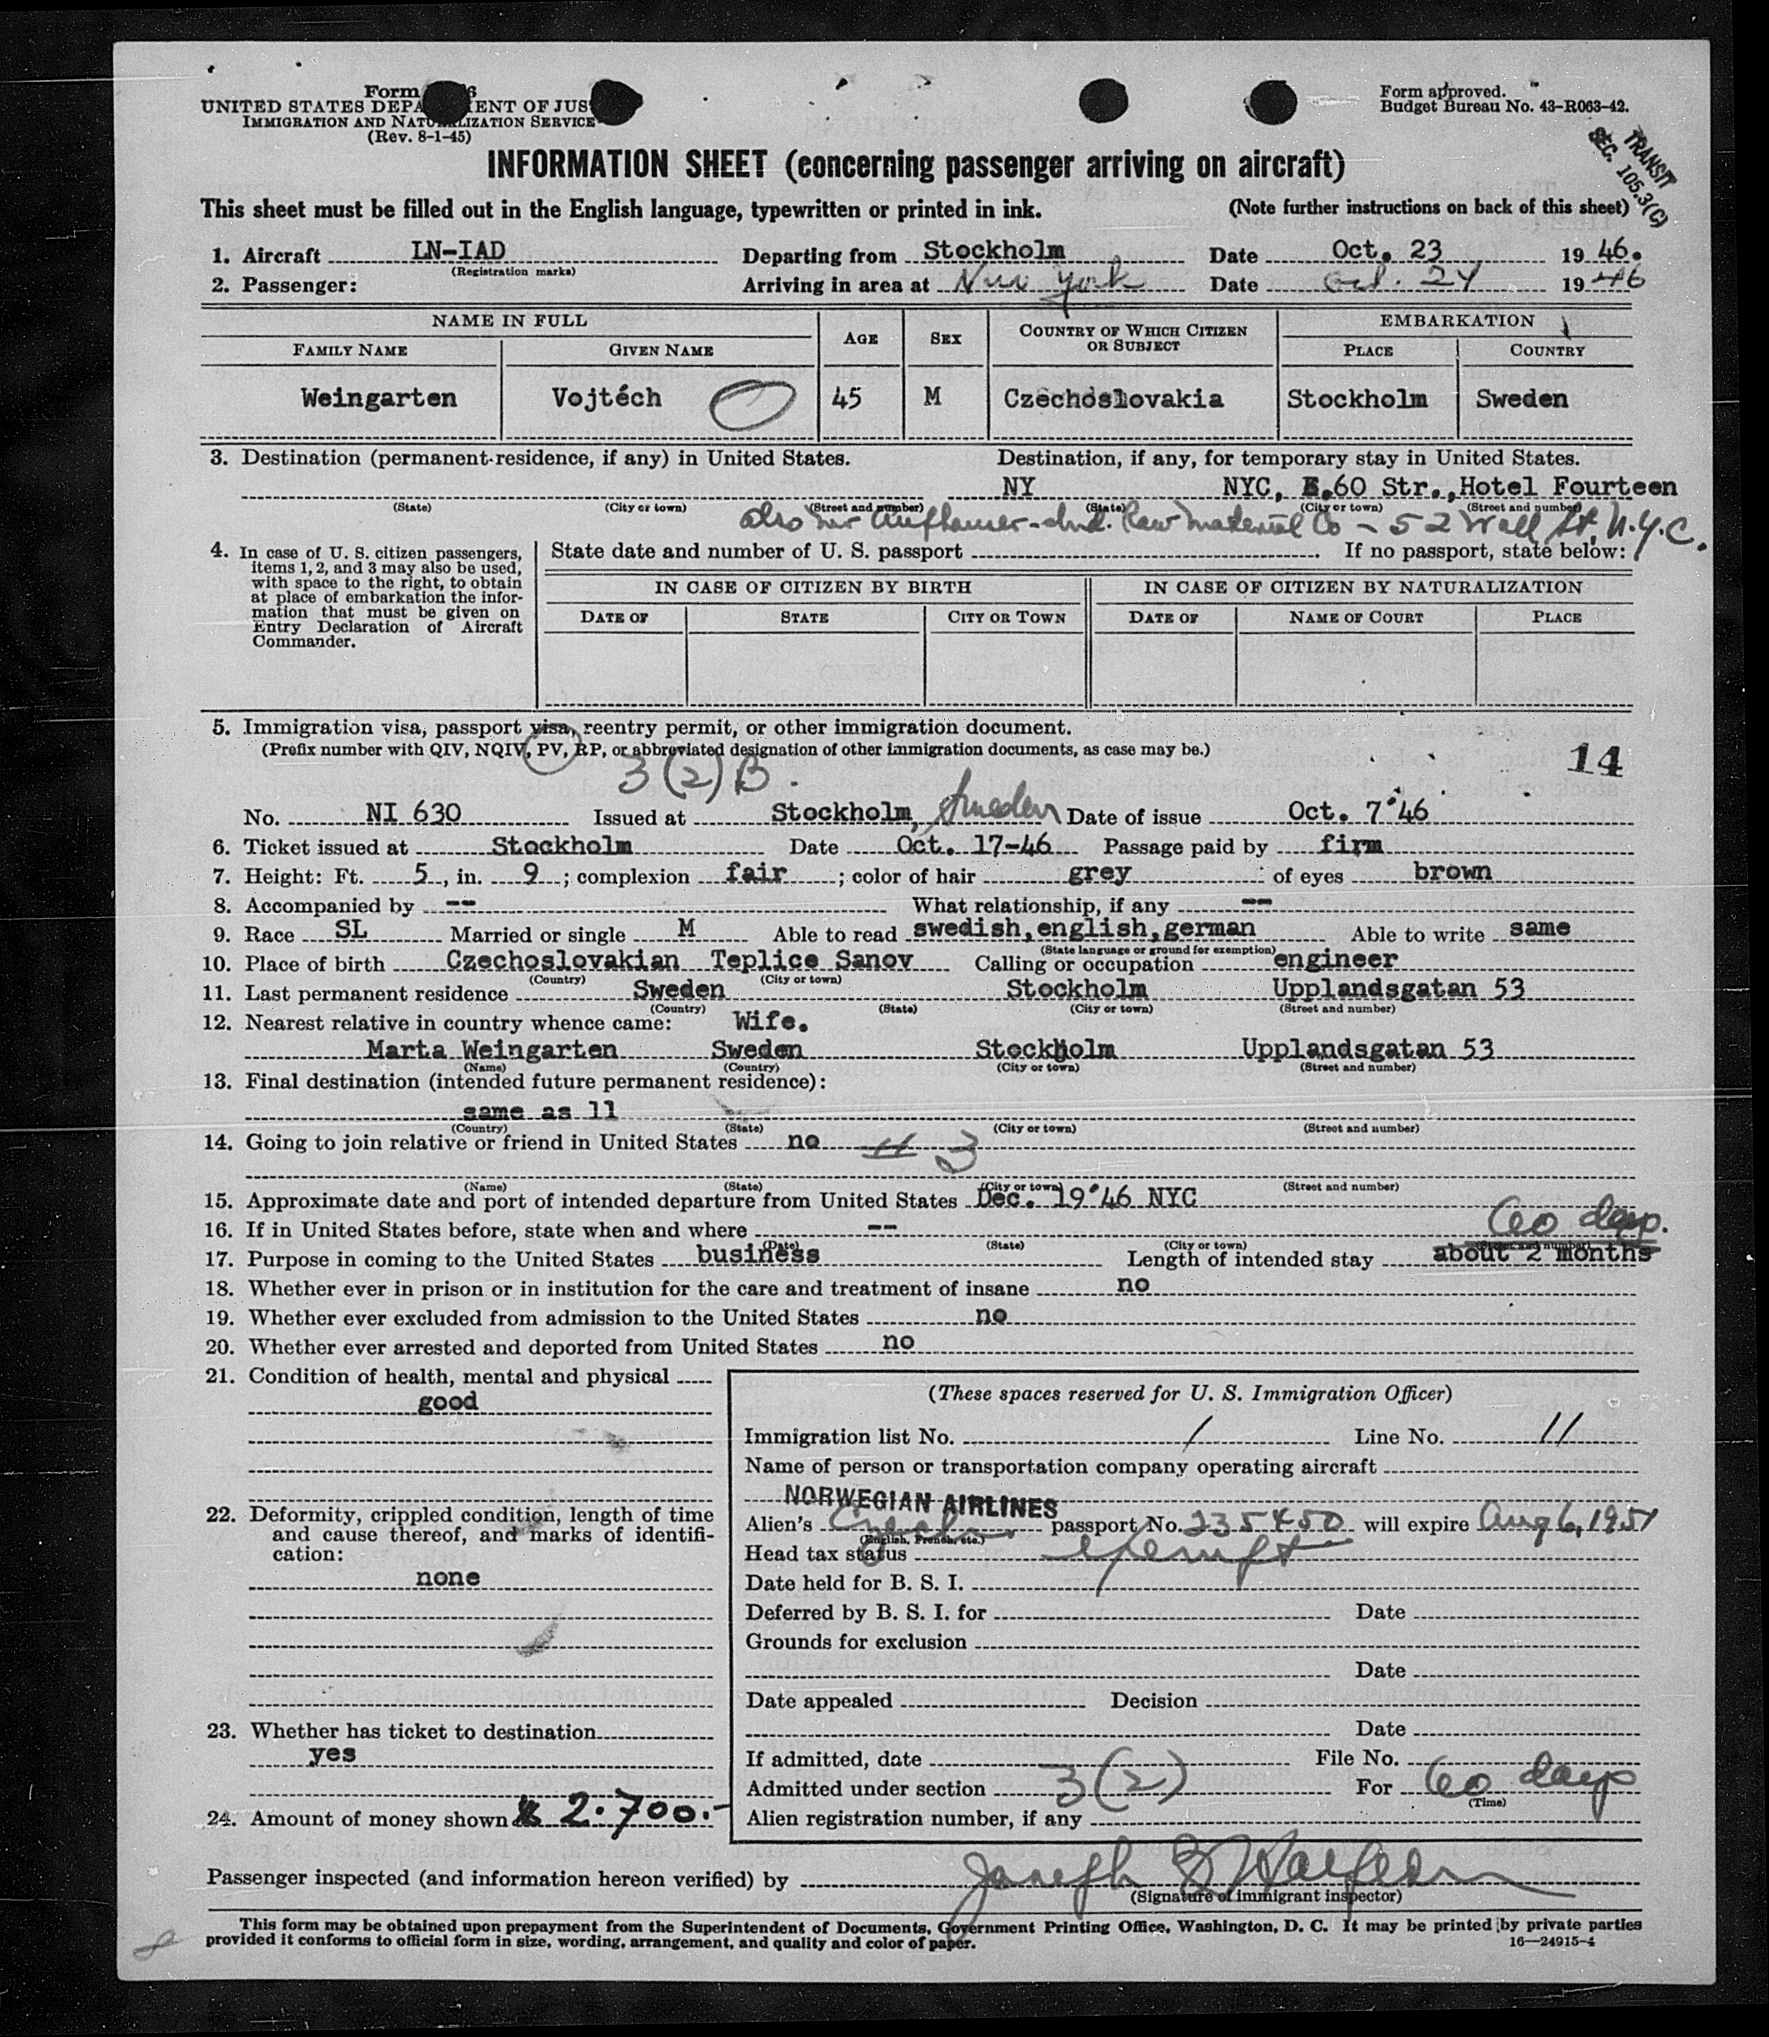 Form 6
UNITED STATES DEPA ENT OF JUS
IMMIGRATION AND NATURALIZATION SERVICE
(Rev. 8-1-45)
Form approved.
Budget Bureau No. 43-R063-42.
TRANSIT
SEC. 105.3(C)
INFORMATION SHEET (concerning passenger arriving on aircraft)
This sheet must be filled out in the English language, typewritten or printed in ink. (Note further instructions on back of this sheet)
1. Aircraft LN-IAD Departing from Stockholm Date Oct. 23 1946.
(Registration marks)
2. Passenger: Arriving in area at New York Date Oct. 24 1946
NAME IN FULL AGE SEX COUNTRY OF WHICH CITIZEN OR SUBJECT EMBARKATION
FAMILY NAME GIVEN NAME PLACE COUNTRY
Weingarten Vojtéch 45 M Czechoslovakia Stockholm Sweden
3. Destination (permanent residence, if any) in United States. Destination, if any, for temporary stay in United States.
NY NYC, E.60 Str., Hotel Fourteen
(State) (City or town) (Street and number) (State) (City or town) (Street and number)
also Mr Aufhauser - Ind. Raw Material Co - 52 Wall St, N.Y.C.
4. In case of U. S. citizen passengers, items 1, 2, and 3 may also be used, with space to the right, to obtain at place of embarkation the information that must be given on Entry Declaration of Aircraft Commander.
State date and number of U. S. passport . If no passport, state below:
IN CASE OF CITIZEN BY BIRTH IN CASE OF CITIZEN BY NATURALIZATION
DATE OF STATE CITY OR TOWN DATE OF NAME OF COURT PLACE
5. Immigration visa, passport visa, reentry permit, or other immigration document.
(Prefix number with QIV, NQIV, PV, RP, or abbreviated designation of other immigration documents, as case may be.)
14
3(2)B.
No. NI 630 Issued at Stockholm, Sweden Date of issue Oct. 7'46
6. Ticket issued at Stockholm Date Oct. 17-46 Passage paid by firm
7. Height: Ft. 5, in. 9; complexion fair; color of hair grey of eyes brown
8. Accompanied by -- What relationship, if any --
9. Race SL Married or single M Able to read swedish,english,german Able to write same
(State language or ground for exemption)
10. Place of birth Czechoslovakian Teplice Sanov Calling or occupation engineer
(Country) (City or town)
11. Last permanent residence Sweden Stockholm Upplandsgatan 53
(Country) (State) (City or town) (Street and number)
12. Nearest relative in country whence came: Wife.
Marta Weingarten Sweden Stockholm Upplandsgatan 53
(Name) (Country) (City or town) (Street and number)
13. Final destination (intended future permanent residence):
same as 11
(Country) (State) (City or town) (Street and number)
14. Going to join relative or friend in United States no 11 3
(Name) (State) (City or town) (Street and number)
15. Approximate date and port of intended departure from United States Dec. 19'46 NYC
16. If in United States before, state when and where -- 60 days.
(Date) (State) (City or town) (Street and number)
17. Purpose in coming to the United States business Length of intended stay about 2 months
18. Whether ever in prison or in institution for the care and treatment of insane no
19. Whether ever excluded from admission to the United States no
20. Whether ever arrested and deported from United States no
21. Condition of health, mental and physical
good
22. Deformity, crippled condition, length of time and cause thereof, and marks of identification:
none
23. Whether has ticket to destination
yes
24. Amount of money shown $ 2.700.-
(These spaces reserved for U. S. Immigration Officer)
Immigration list No. 1 Line No. 11
Name of person or transportation company operating aircraft
NORWEGIAN AIRLINES
Alien's Czecho passport No. 235450 will expire Aug 6, 1951
(English, French, etc.)
Head tax status exempt
Date held for B. S. I.
Deferred by B. S. I. for Date
Grounds for exclusion
Date
Date appealed Decision
Date
If admitted, date File No.
Admitted under section 3(2) For 60 days
(Time)
Alien registration number, if any
Passenger inspected (and information hereon verified) by Joseph
(Signature of immigrant inspector)
This form may be obtained upon prepayment from the Superintendent of Documents, Government Printing Office, Washington, D. C. It may be printed by private parties
provided it conforms to official form in size, wording, arrangement, and quality and color of paper.
16—24915-4